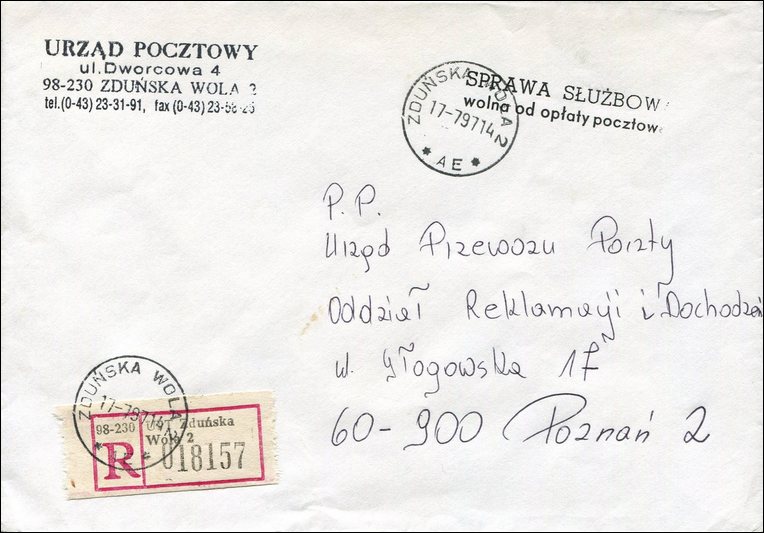 URZĄD POCZTOWY
ul.Dworcowa 4
98-230 ZDUŃSKA WOLA 2
tel.(0-43) 23-31-91, fax (0-43) 23-58-25
ZDUŃSKA WOLA 2
17-79714
* AE *
SPRAWA SŁUŻBOW
wolna od opłaty pocztowe
P.P.
Urząd Przewozu Poczty
Oddział Reklamacji i Dochodzeń
ul. Głogowska 17
60-900 Poznań 2
ZDUŃSKA WOLA
17-79714
98-230
Zduńska
Wola 2
R
018157